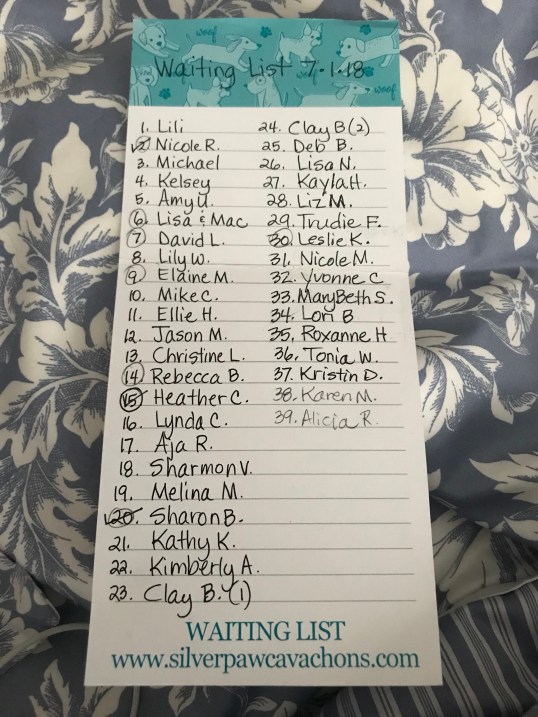 woof
woof
woof
Waiting List 7-1-18
1. Lili
2. Nicole R.
3. Michael
4. Kelsey
5. Amy U.
6. Lisa & Mac
7. David L.
8. Lily W.
9. Elaine M.
10. Mike C.
11. Ellie H.
12. Jason M.
13. Christine L.
14. Rebecca B.
15. Heather C.
16. Lynda C.
17. Aja R.
18. Sharmon V.
19. Melina M.
20. Sharon B.
21. Kathy K.
22. Kimberly A.
23. Clay B. (1)
24. Clay B (2)
25. Deb B.
26. Lisa N.
27. Kayla H.
28. Liz M.
29. Trudie F.
30. Leslie K.
31. Nicole M.
32. Yvonne C
33. MaryBeth S.
34. Lori B
35. Roxanne H
36. Tonia W.
37. Kristin D.
38. Karen M.
39. Alicia R.
WAITING LIST
www.silverpawcavachons.com